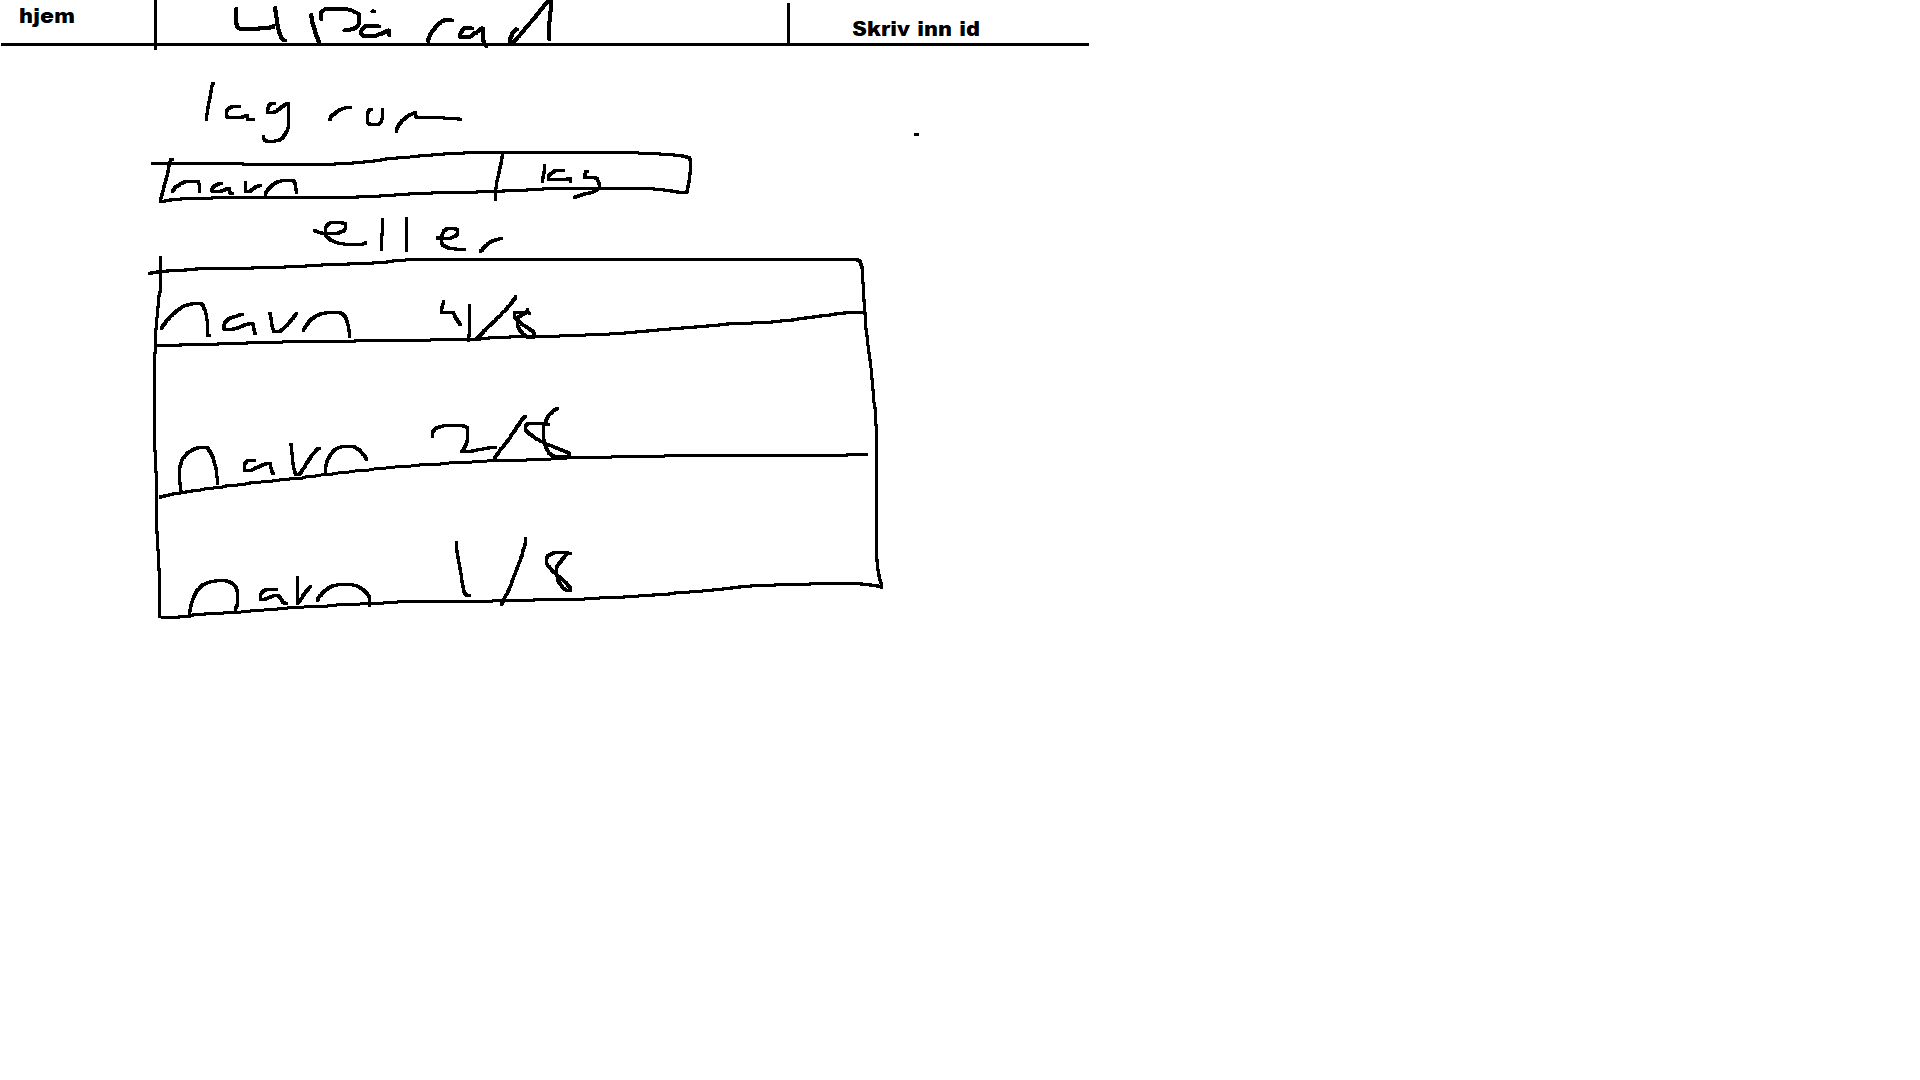 hjem 4 På rad Skriv inn id
lag rom
navn lag
eller
navn 4/8
navn 2/8
navn 1/8